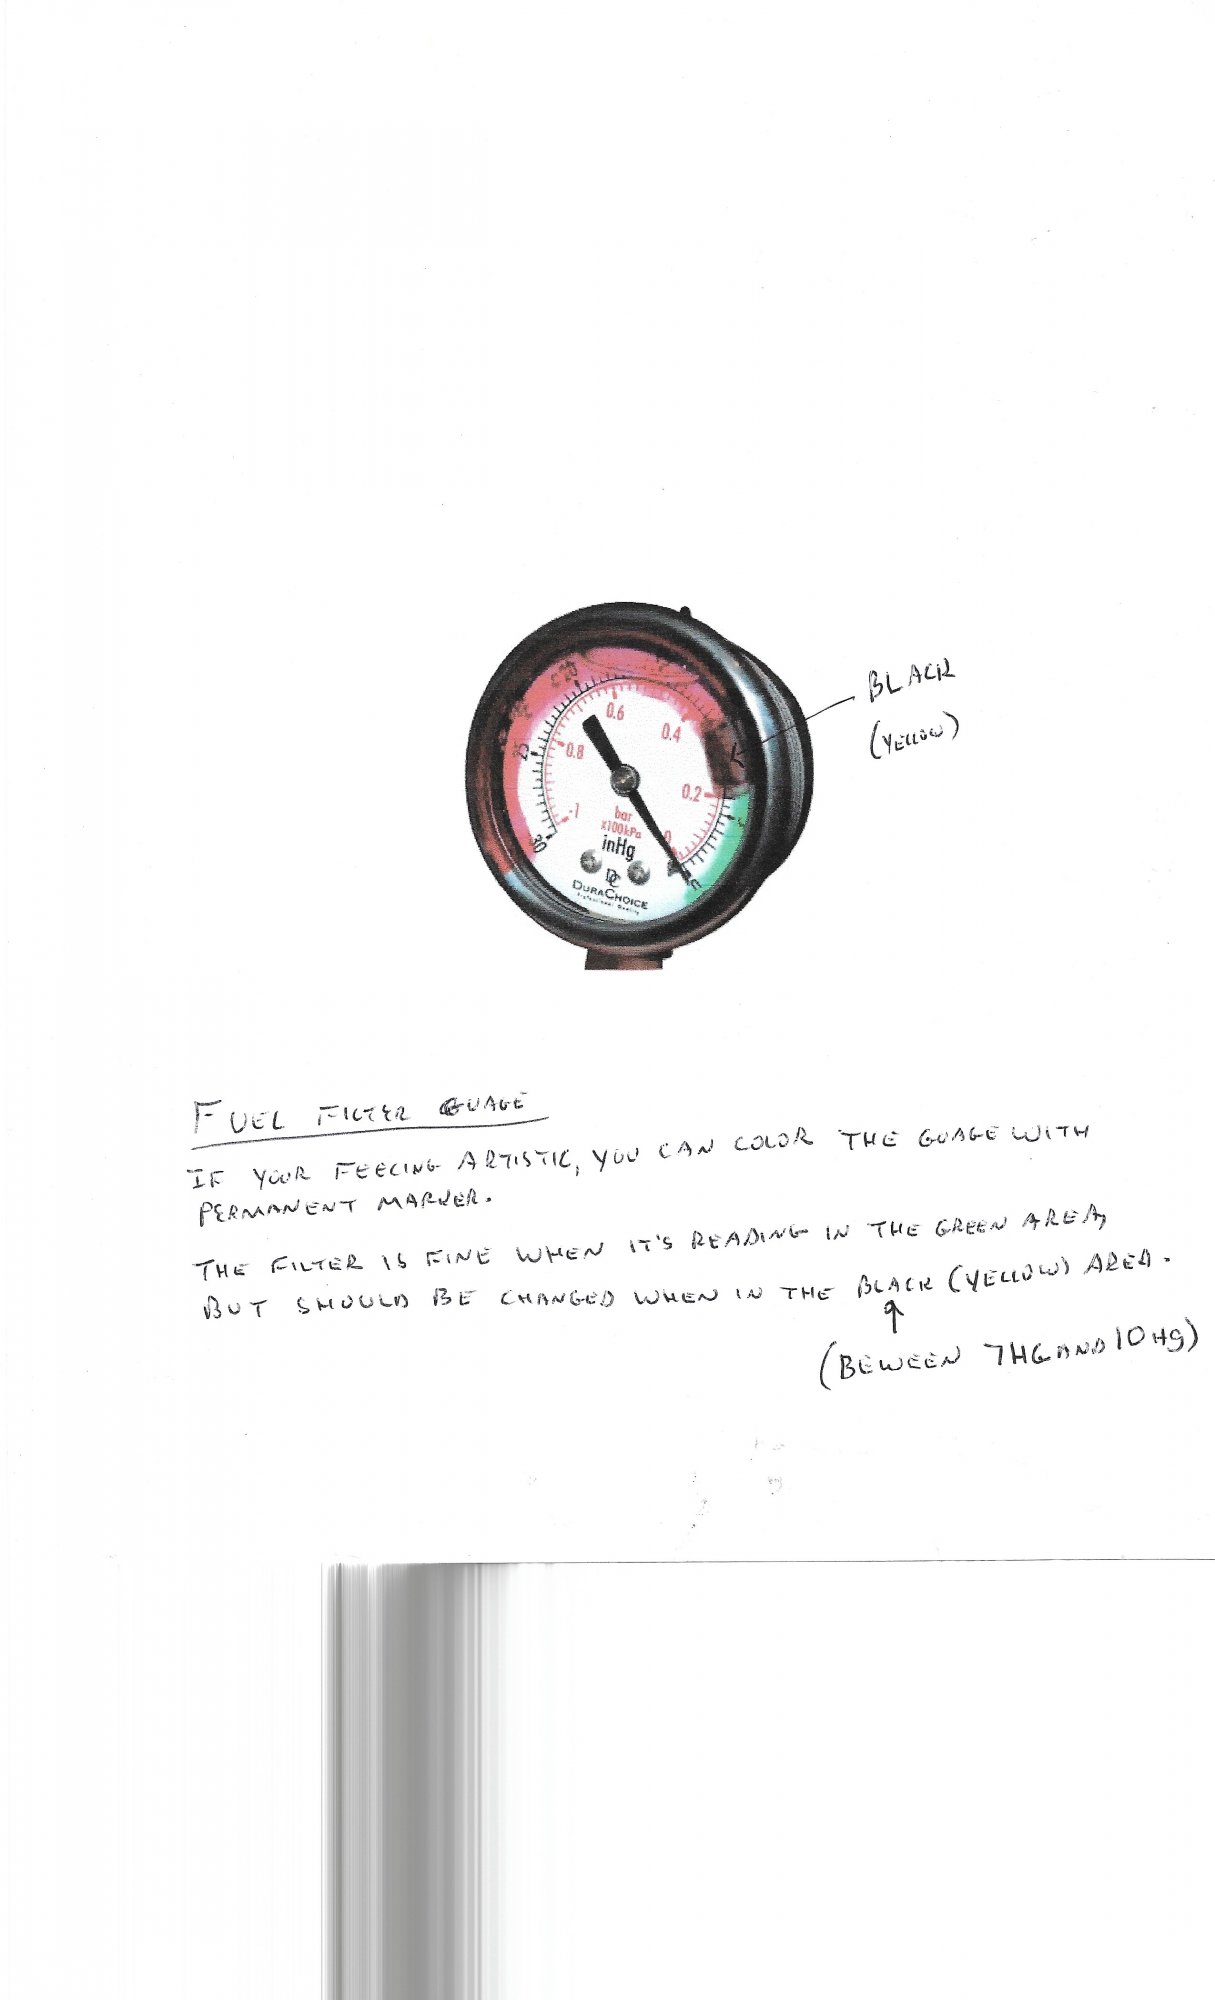 BLACK
(YELLOW)
20
25
30
0.6
0.8
0.4
0.2
-1
0
bar
x100kPa
inHg
DC
DURACHOICE
Professional Quality
FUEL FILTER GUAGE
IF YOUR FEELING ARTISTIC, YOU CAN COLOR THE GUAGE WITH
PERMANENT MARKER.
THE FILTER IS FINE WHEN IT'S READING IN THE GREEN AREA,
BUT SHOULD BE CHANGED WHEN IN THE BLACK (YELLOW) AREA.
(BEWEEN 7HG AND 10 Hg)